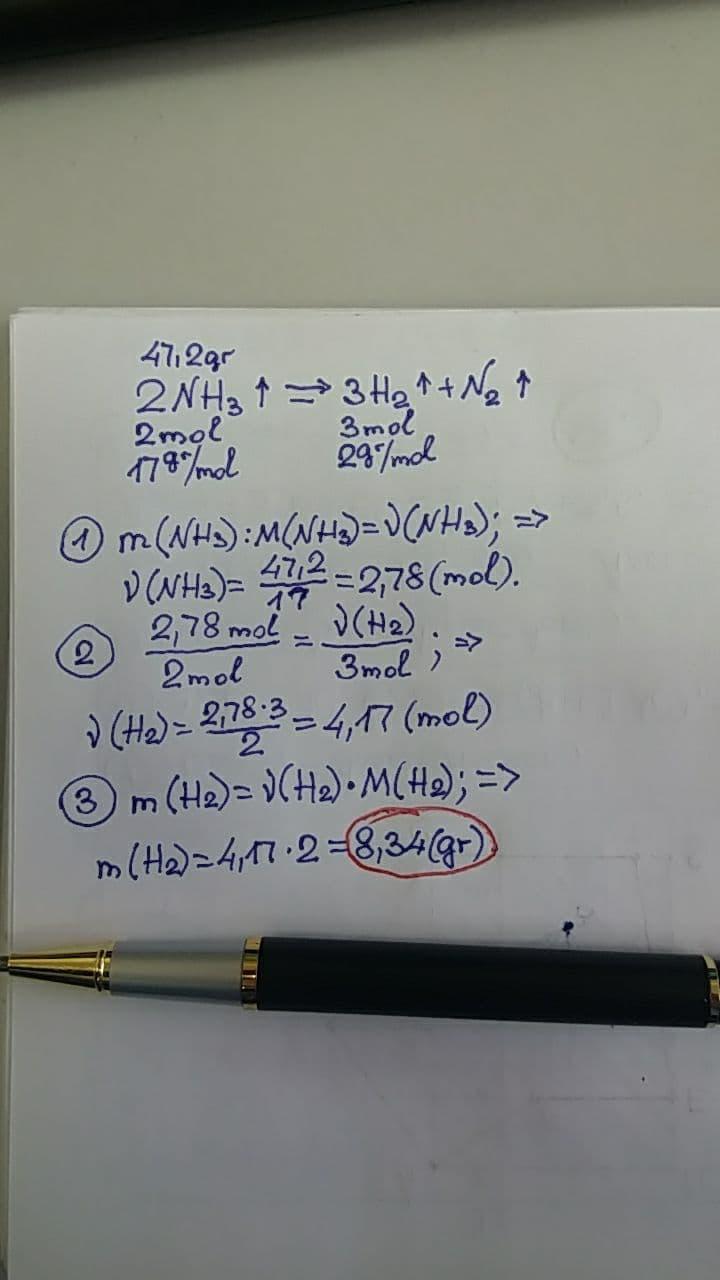 47,2gr
2NH₃↑ ⇒ 3H₂↑+N₂↑
2mol 3mol
17gr/mol 2gr/mol
① m(NH₃):M(NH₃)=ν(NH₃); =>
ν(NH₃)= 47,2/17 =2,78(mol).
② 2,78mol/2mol = ν(H₂)/3mol ; =>
ν(H₂)= 2,78·3/2 =4,17(mol)
③ m(H₂)=ν(H₂)·M(H₂); =>
m(H₂)=4,17·2=8,34(gr)